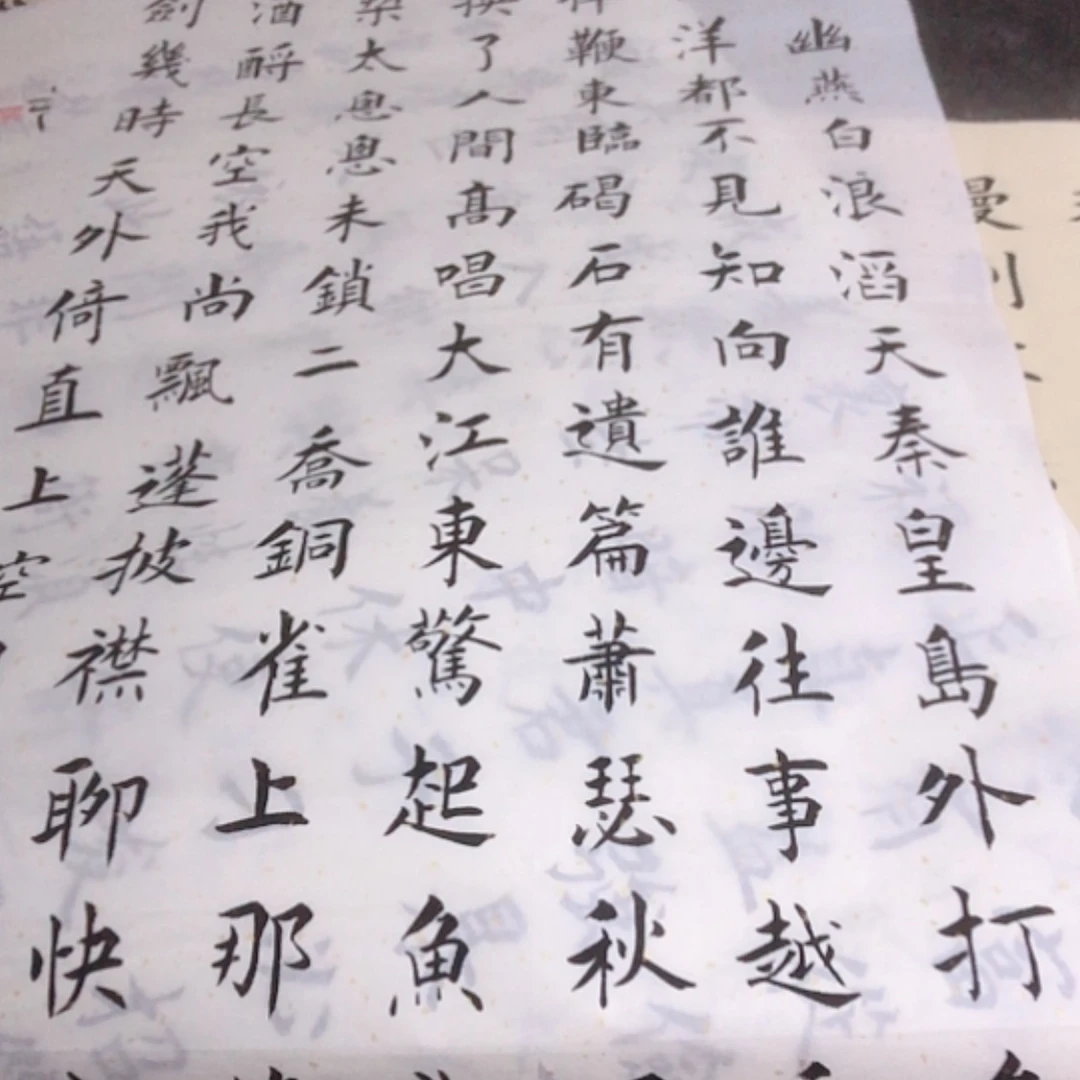 幽燕白浪滔天秦皇島外打
洋都不見知向誰邊往事越
鞭東臨碣石有遺篇蕭瑟秋
換了人間髙唱大江東驚起魚
太悤悤未鎖二喬銅雀上那
酒酹長空我尚飄蓬披襟聊快
劍幾時天外倚直上
空